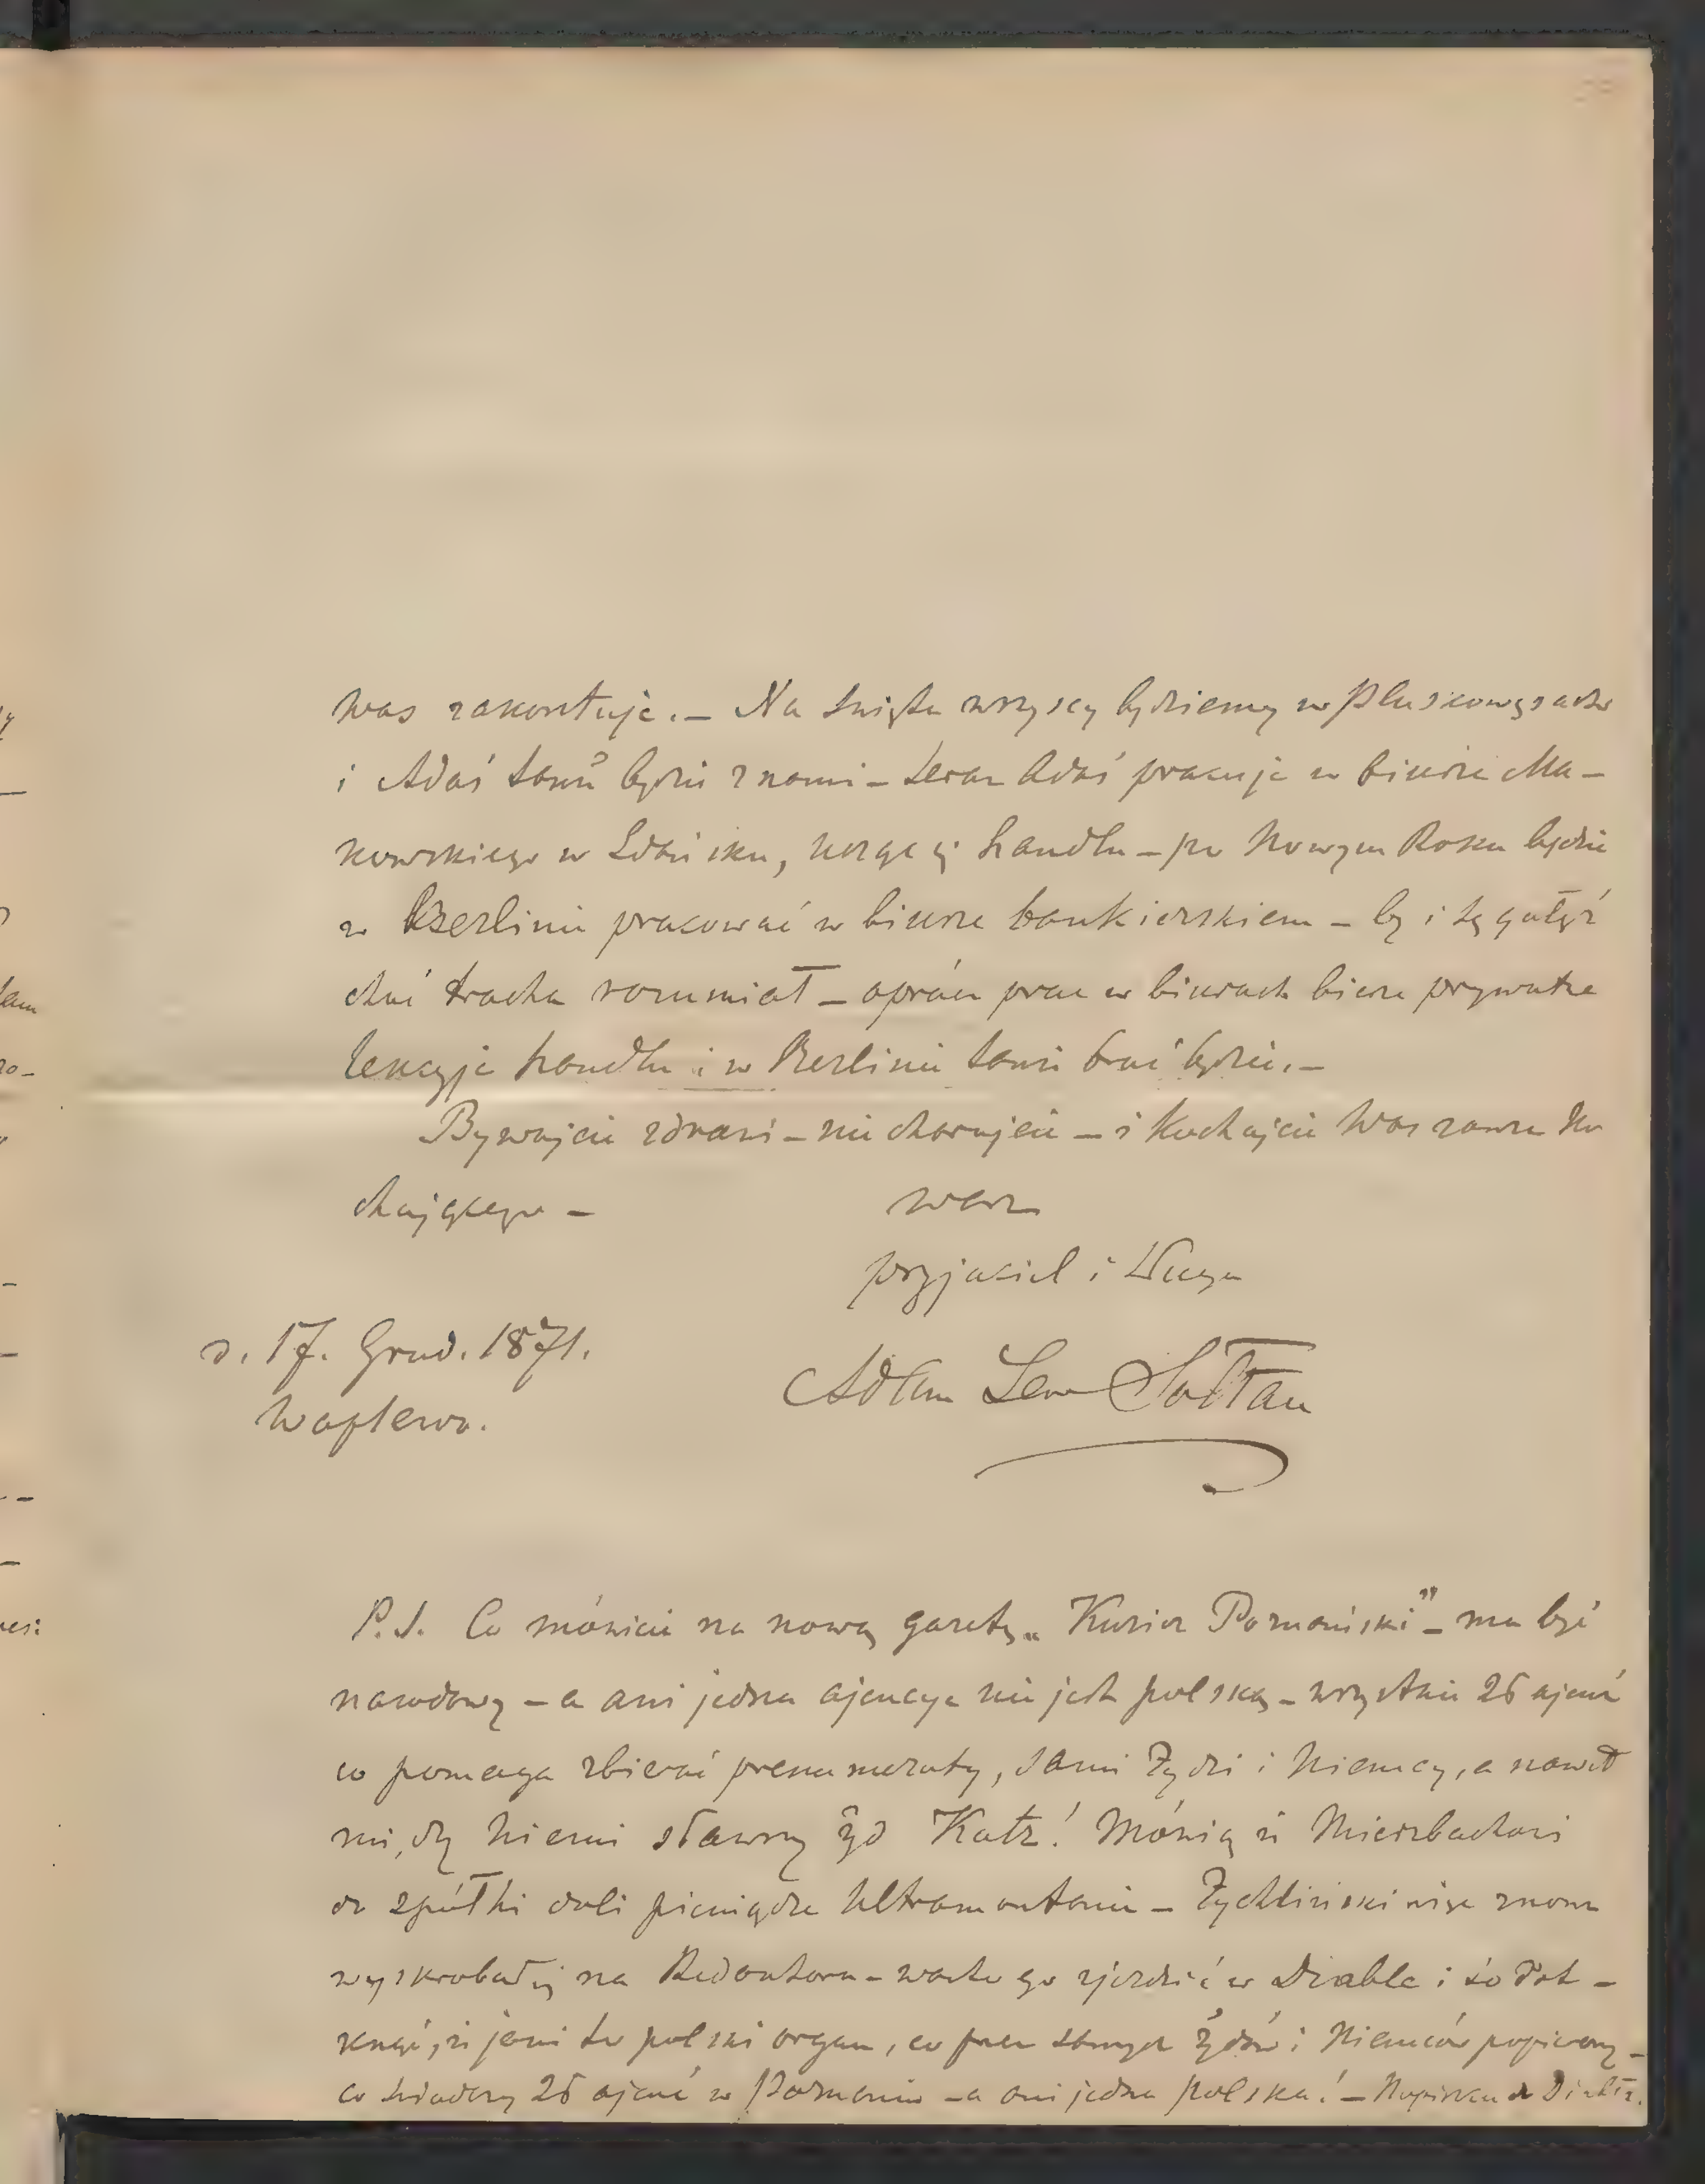 Was zakontuje. — Na święta wszyscy będziemy w Pluskowęsach
i Adaś także będzie z nami — teraz Adaś pracuje w biurze Ma-
kowskiego w Gdańsku, uczący się handlu — po Nowym Roku będzie
w Berlinie pracować w biurze bankierskiem — by i tę gałęź
choć trocha rozumiał — oprócz prac w biurach bierze prywatne
lekcyje handlu i w Berlinie także brać będzie. —
Bywajcie zdrowi — nie chorujcie — i kochajcie Was zawsze ko
chającego —
wasz
przyjaciel i sługa
d. 17. Grud. 1871.
Adam Lew Sołtan
Waplewo.
P.S. Co mówicie na nową gazetę „Kurier Poznański" — ma być
narodowy — a ani jedna ajencya nie jest polską — wszystkie 26 ajencyi
co pomaga zbierać prenumeraty, sami Żydzi i Niemcy, a nawet
między niemi sławny żyd Katz! Mówią iż Mierzbachowi
do spółki dali pieniądze Ultramontanie — Żychliński więc znowu
wyskrobał się na Redaktora — warto go zjeździć w Diable i to
że to polski organ, co przez samych żydów i Niemców popierany —
co świadczy 26 ajencyi w Poznaniu — a ani jedna polska! — do Diabła.